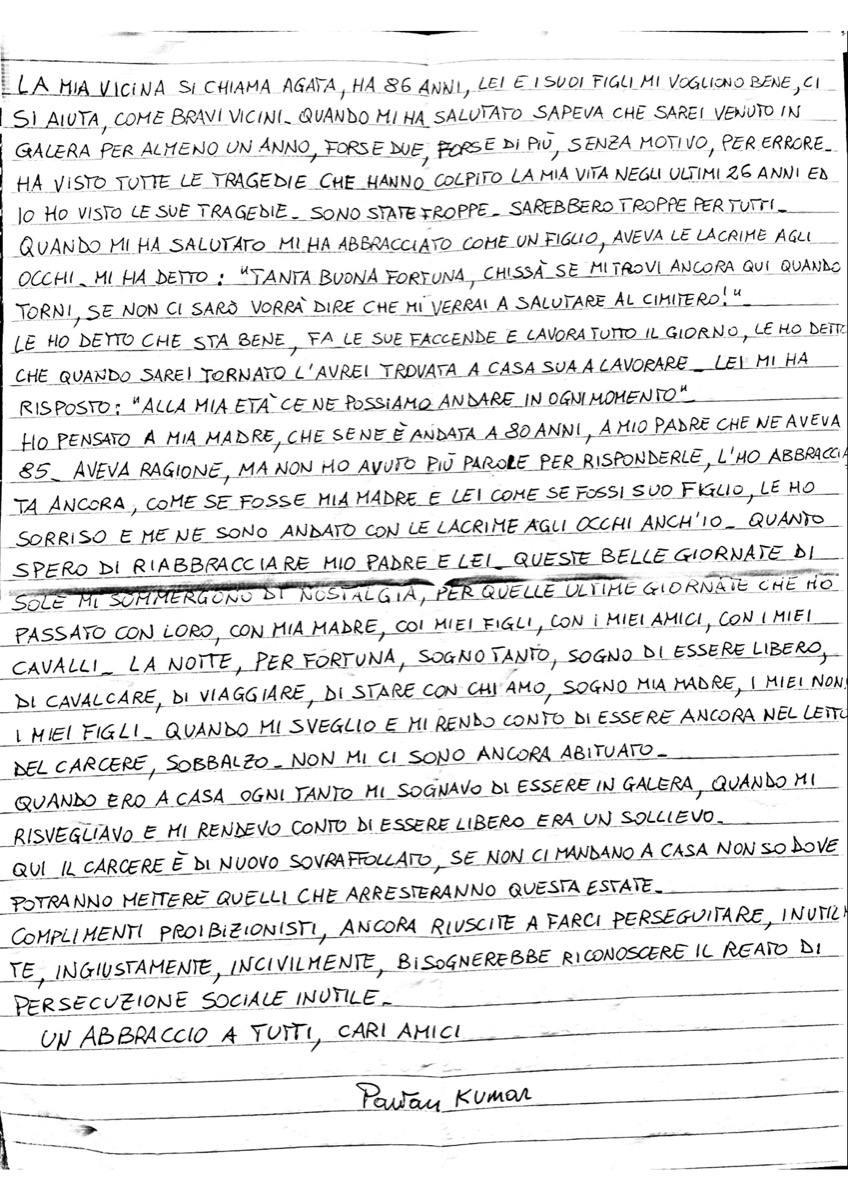 LA MIA VICINA SI CHIAMA AGATA, HA 86 ANNI, LEI E I SUOI FIGLI MI VOGLIONO BENE, CI
SI AIUTA, COME BRAVI VICINI_ QUANDO MI HA SALUTATO SAPEVA CHE SAREI VENUTO IN
GALERA PER ALMENO UN ANNO, FORSE DUE, FORSE DI PIÙ, SENZA MOTIVO, PER ERRORE_
HA VISTO TUTTE LE TRAGEDIE CHE HANNO COLPITO LA MIA VITA NEGLI ULTIMI 26 ANNI ED
IO HO VISTO LE SUE TRAGEDIE_ SONO STATE TROPPE_ SAREBBERO TROPPE PER TUTTI_
QUANDO MI HA SALUTATO MI HA ABBRACCIATO COME UN FIGLIO, AVEVA LE LACRIME AGLI
OCCHI_ MI HA DETTO: "TANTA BUONA FORTUNA, CHISSÀ SE MI TROVI ANCORA QUI QUANDO
TORNI, SE NON CI SARÒ VORRÀ DIRE CHE MI VERRAI A SALUTARE AL CIMITERO!"_
LE HO DETTO CHE STA BENE, FA LE SUE FACCENDE E LAVORA TUTTO IL GIORNO, LE HO DETTO
CHE QUANDO SAREI TORNATO L'AVREI TROVATA A CASA SUA A LAVORARE_ LEI MI HA
RISPOSTO: "ALLA MIA ETÀ CE NE POSSIAMO ANDARE IN OGNI MOMENTO"
HO PENSATO A MIA MADRE, CHE SE NE È ANDATA A 80 ANNI, A MIO PADRE CHE NE AVEVA
85_ AVEVA RAGIONE, MA NON HO AVUTO PIÙ PAROLE PER RISPONDERLE, L'HO ABBRACCIA
TA ANCORA, COME SE FOSSE MIA MADRE E LEI COME SE FOSSI SUO FIGLIO, LE HO
SORRISO E ME NE SONO ANDATO CON LE LACRIME AGLI OCCHI ANCH'IO_ QUANTO
SPERO DI RIABBRACCIARE MIO PADRE E LEI_ QUESTE BELLE GIORNATE DI
SOLE MI SOMMERGONO DI NOSTALGIA, PER QUELLE ULTIME GIORNATE CHE HO
PASSATO CON LORO, CON MIA MADRE, COI MIEI FIGLI, CON I MIEI AMICI, CON I MIEI
CAVALLI_ LA NOTTE, PER FORTUNA, SOGNO TANTO, SOGNO DI ESSERE LIBERO,
DI CAVALCARE, DI VIAGGIARE, DI STARE CON CHI AMO, SOGNO MIA MADRE, I MIEI NONNI
I MIEI FIGLI_ QUANDO MI SVEGLIO E MI RENDO CONTO DI ESSERE ANCORA NEL LETTO
DEL CARCERE, SOBBALZO_ NON MI CI SONO ANCORA ABITUATO_
QUANDO ERO A CASA OGNI TANTO MI SOGNAVO DI ESSERE IN GALERA, QUANDO MI
RISVEGLIAVO E MI RENDEVO CONTO DI ESSERE LIBERO ERA UN SOLLIEVO_
QUI IL CARCERE È DI NUOVO SOVRAFFOLLATO, SE NON CI MANDANO A CASA NON SO DOVE
POTRANNO METTERE QUELLI CHE ARRESTERANNO QUESTA ESTATE_
COMPLIMENTI PROIBIZIONISTI, ANCORA RIUSCITE A FARCI PERSEGUITARE, INUTILM
TE, INGIUSTAMENTE, INCIVILMENTE, BISOGNEREBBE RICONOSCERE IL REATO DI
PERSECUZIONE SOCIALE INUTILE_
UN ABBRACCIO A TUTTI, CARI AMICI
Pawan KUMAR